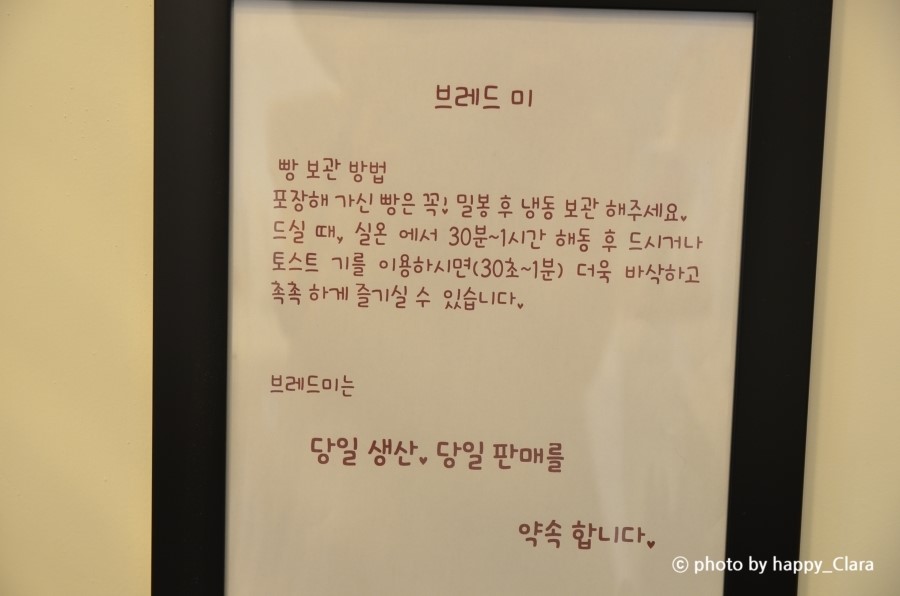 브레드 미
빵 보관 방법
포장해 가신 빵은 꼭! 밀봉 후 냉동 보관 해주세요.
드실 때, 실온 에서 30분~1시간 해동 후 드시거나
토스트 기를 이용하시면(30초~1분) 더욱 바삭하고
촉촉 하게 즐기실 수 있습니다.
브레드미는
당일 생산, 당일 판매를
약속 합니다.
© photo by happy_Clara